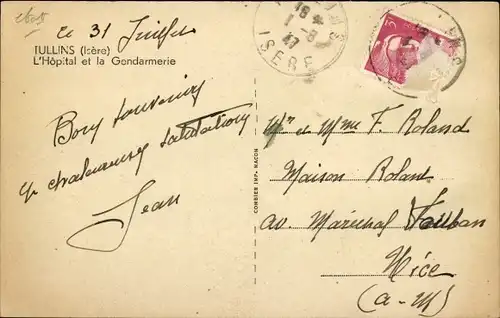 Le 31 Juillet
TULLINS (Isère)
L'Hôpital et la Gendarmerie
18
1 -8
47
ISERE
Bons souvenirs
et chaleureuses salutations
Jean
COMBIER IMP. MACON
Mr et Mme F. Roland
Maison Roland
av. Maréchal Vauban
Nice
(a-M)